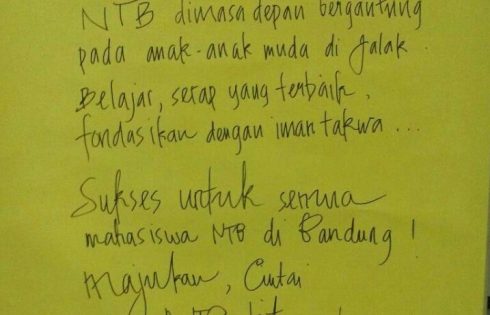 NTB dimasa depan bergantung
pada anak-anak muda di Jalak
Belajar, serap yang terbaik,
fondasikan dengan iman takwa...
Sukses untuk semua
mahasiswa NTB di Bandung!
Majukan, Cintai
NTB